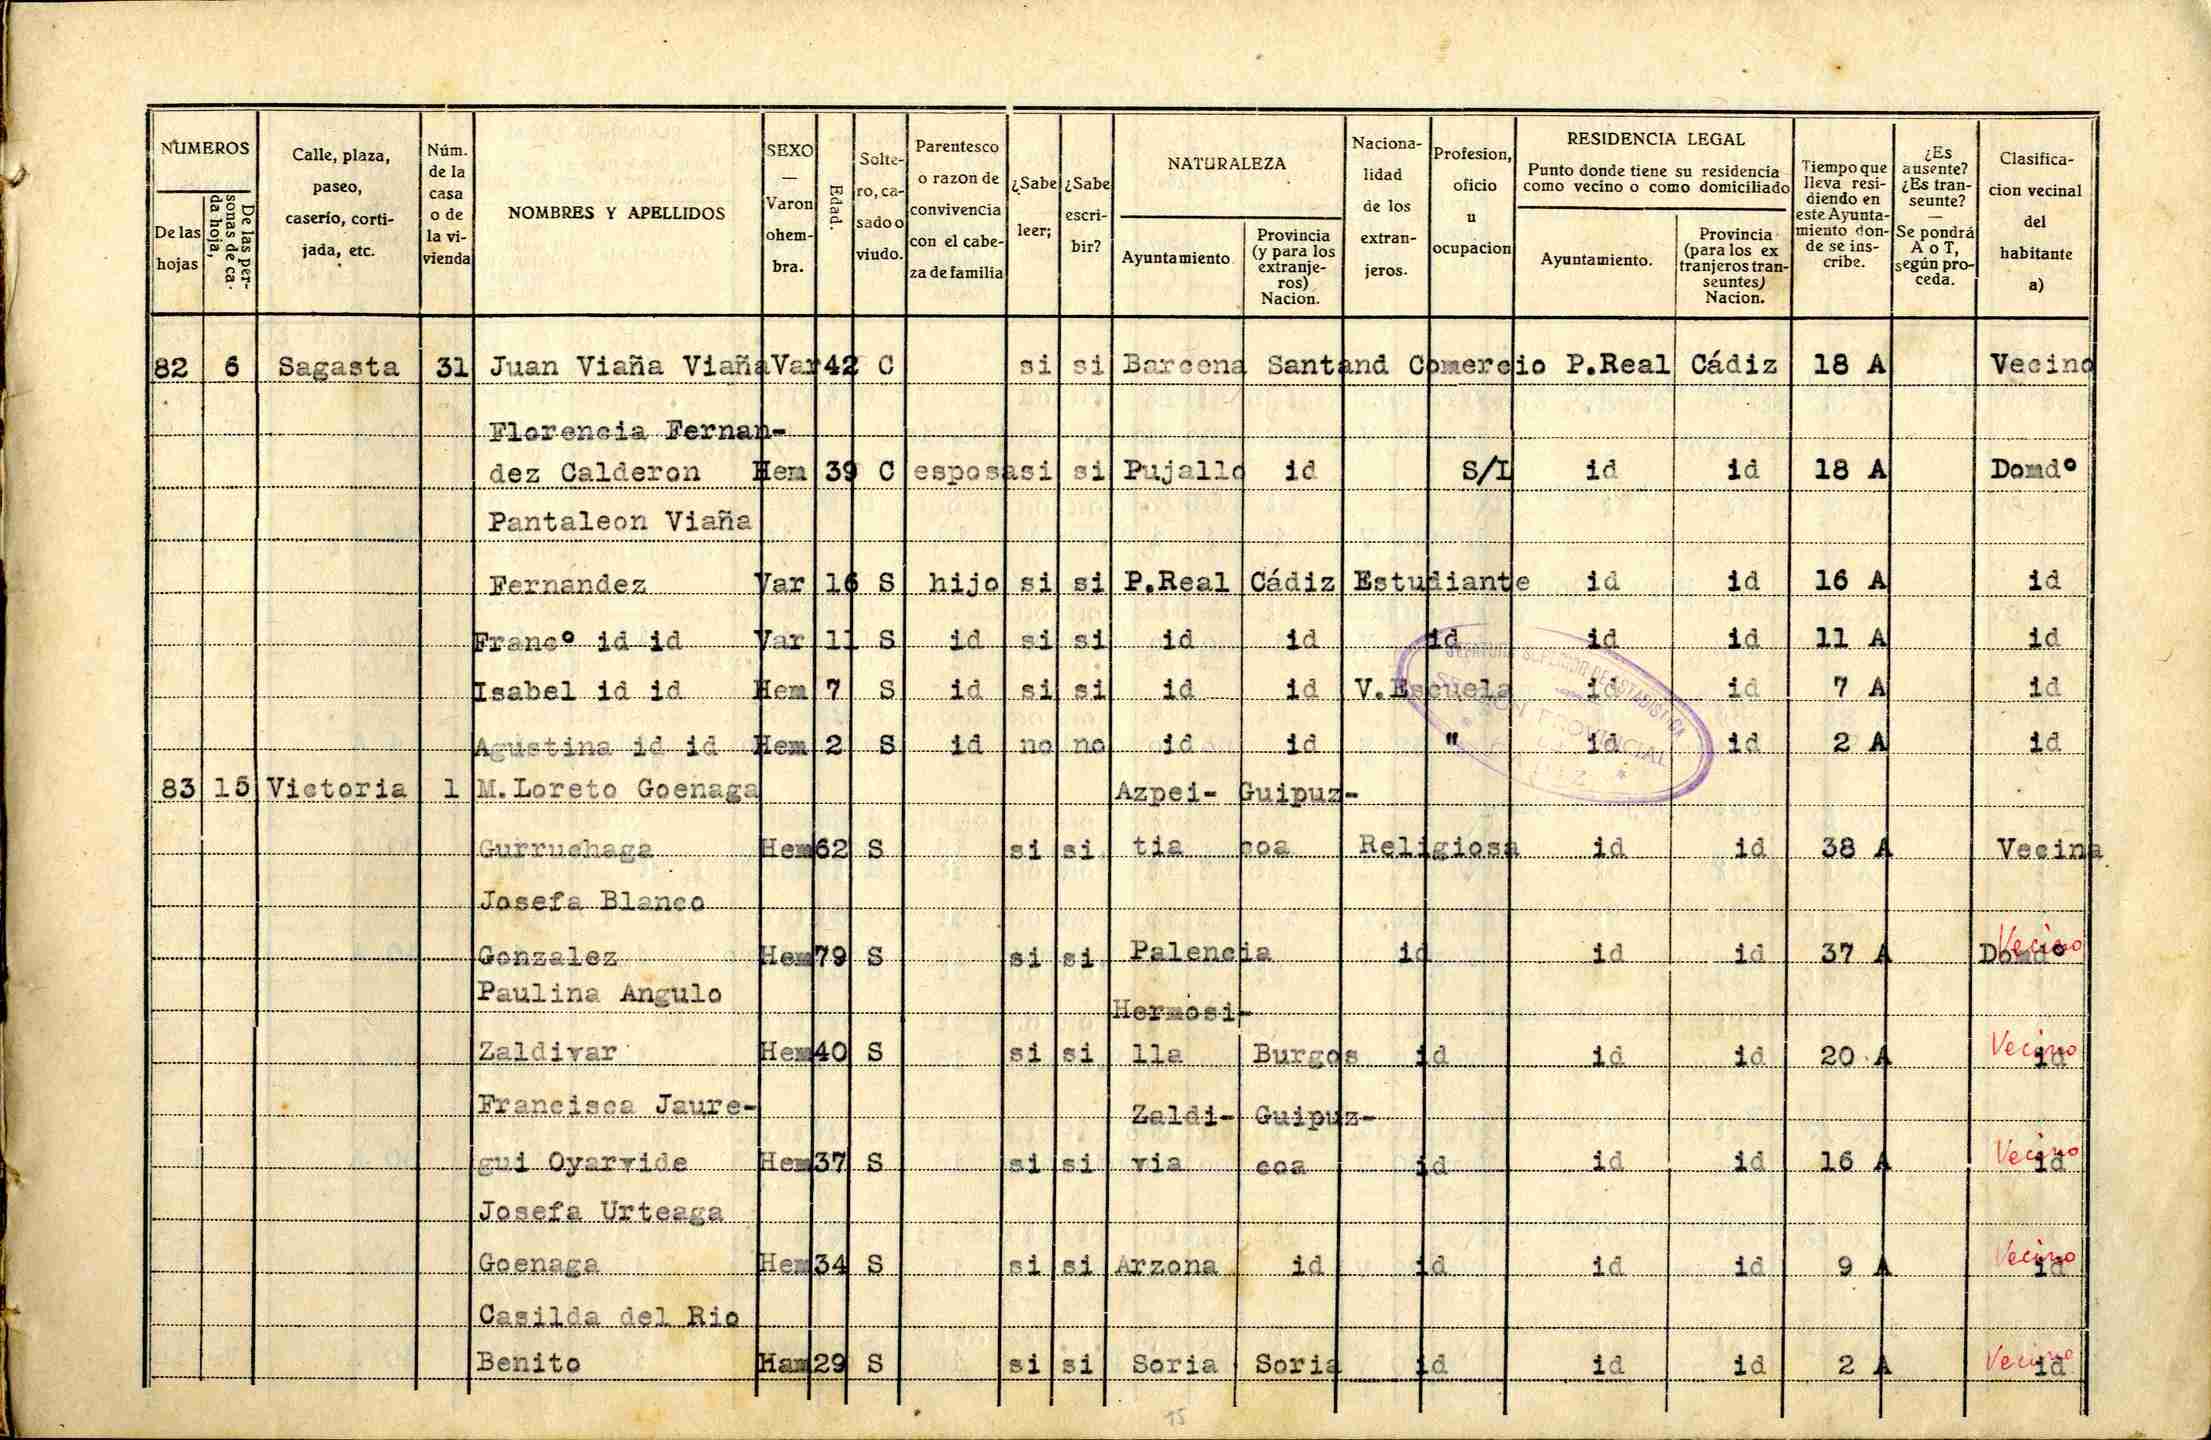 NUMEROS
De las hojas
De las personas de cada hoja,
Calle, plaza, paseo, caserío, cortijada, etc.
Núm. de la casa o de la vivienda
NOMBRES Y APELLIDOS
SEXO — Varon ohembra.
Edad.
Soltero, casado o viudo.
Parentesco o razon de convivencia con el cabeza de familia
¿Sabe leer;
¿Sabe escribir?
NATURALEZA
Ayuntamiento
Provincia (y para los extranjeros) Nacion.
Nacionalidad de los extranjeros.
Profesion, oficio u ocupacion
RESIDENCIA LEGAL
Punto donde tiene su residencia como vecino o como domiciliado
Ayuntamiento.
Provincia (para los extranjeros transeuntes) Nacion.
Tiempo que lleva residiendo en este Ayuntamiento donde se inscribe.
¿Es ausente? ¿Es transeunte? — Se pondrá A o T, según proceda.
Clasificacion vecinal del habitante a)
82 6 Sagasta 31 Juan Viaña Viaña Var 42 C si si Barcena Santand Comercio P.Real Cádiz 18 A Vecino
Florencia Fernan-
dez Calderon Hem 39 C esposa si si Pujallo id S/L id id 18 A Domdº
Pantaleon Viaña
Fernandez Var 16 S hijo si si P.Real Cádiz Estudiante id id 16 A id
Francº id id Var 11 S id si si id id id id id 11 A id
Isabel id id Hem 7 S id si si id id V.Escuela id id 7 A id
Agustina id id Hem 2 S id no no id id " id id 2 A id
83 15 Victoria 1 M.Loreto Goenaga Azpei- Guipuz-
Gurruchaga Hem 62 S si si tia coa Religiosa id id 38 A Vecina
Josefa Blanco
Gonzalez Hem 79 S si si Palencia id id id 37 A Domdº Vecino
Paulina Angulo Hermosi-
Zaldivar Hem 40 S si si lla Burgos id id id 20 A id Vecino
Francisca Jaure- Zaldi- Guipuz-
gui Oyarvide Hem 37 S si si via coa id id id 16 A id Vecino
Josefa Urteaga
Goenaga Hem 34 S si si Arzona id id id id 9 A id Vecino
Casilda del Rio
Benito Ham 29 S si si Soria Soria id id id 2 A id Vecino
15